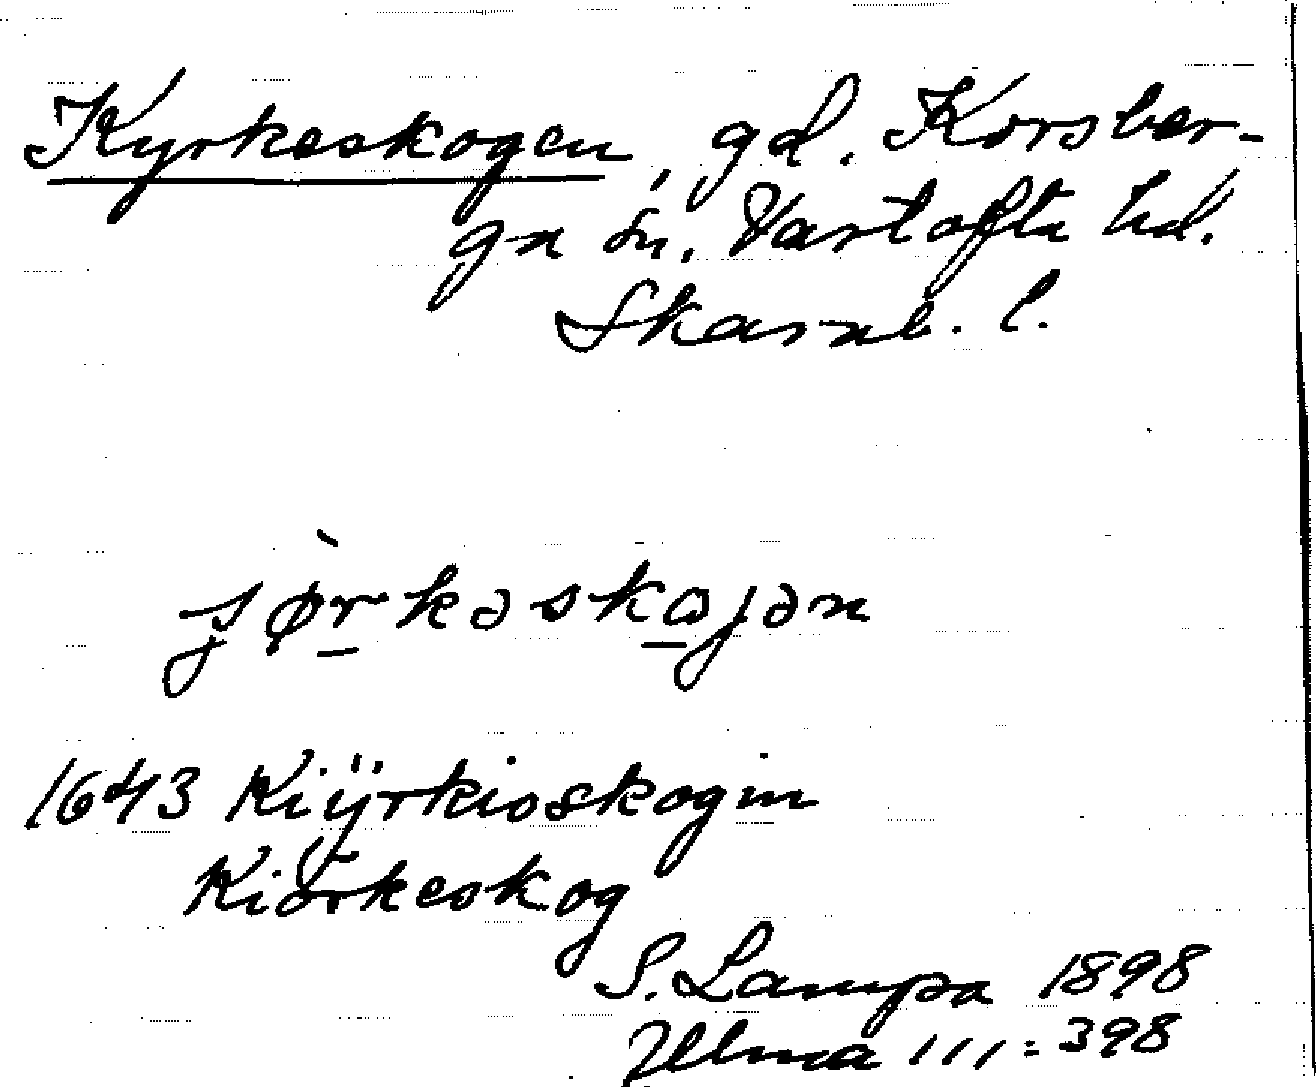 Kyrkeskogen, gd. Korsber-
ga sn. Vartofta hd.
Skarab. l.
1643 Kiÿrkioskogin
Kiörkeskog
S. Lampa 1898
Ulma 111:398